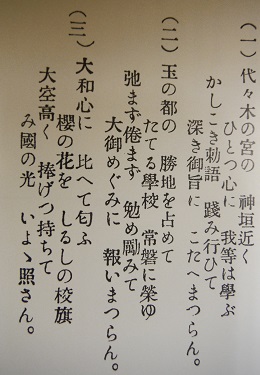 (一) 代々木の宮の 神垣近く
ひとつ心に 我等は學ぶ
かしこき勅語 踐み行ひて
深き御旨に こたへまつらん。
(二) 玉の都の 勝地を占めて
たてる學校 常磐に榮ゆ
弛まず倦まず 勉め勵みて
大御めぐみに 報いまつらん。
(三) 大和心に 比へて匂ふ
櫻の花を しるしの校旗
大空高く 捧げつ持ちて
み國の光 いよゝ照さん。